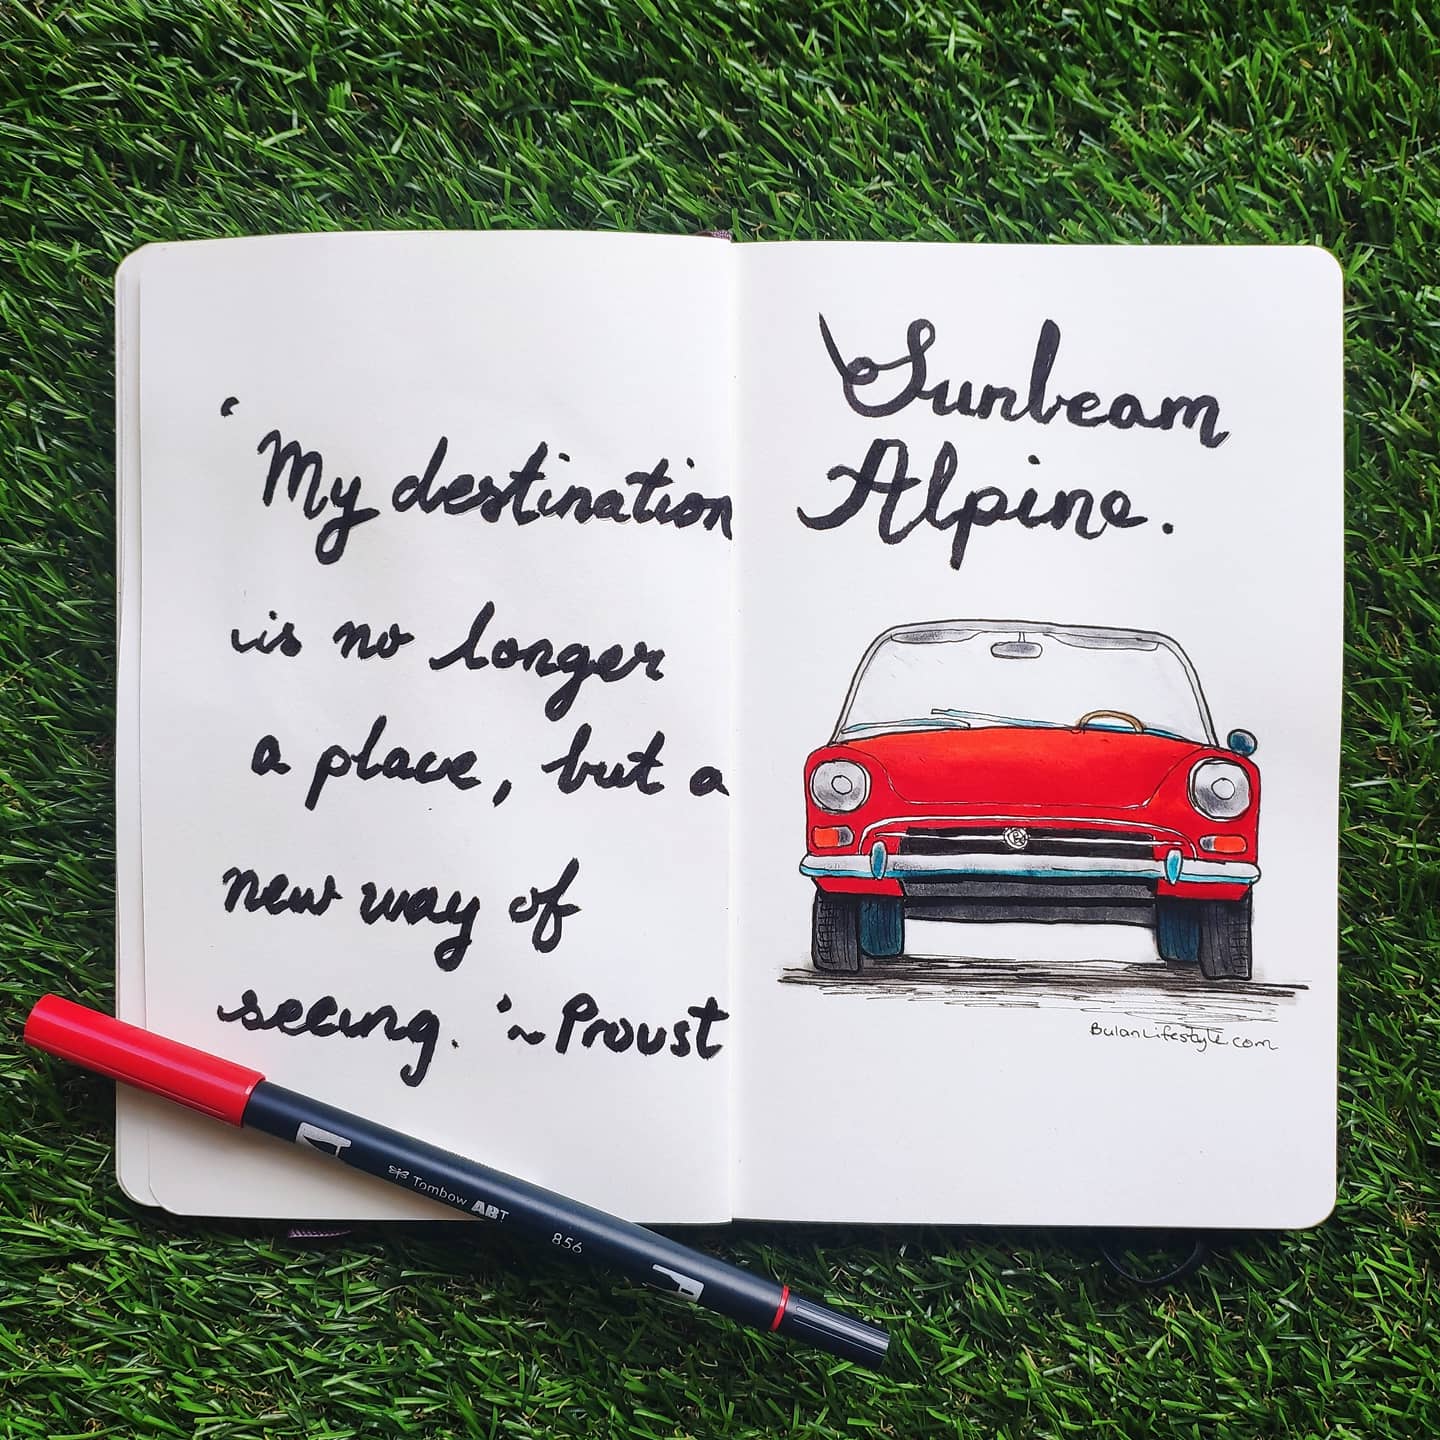 'My destination
is no longer
a place, but a
new way of
seeing.' ~ Proust
Sunbeam
Alpine.
BulanLifestyle.com
Tombow ABT
856